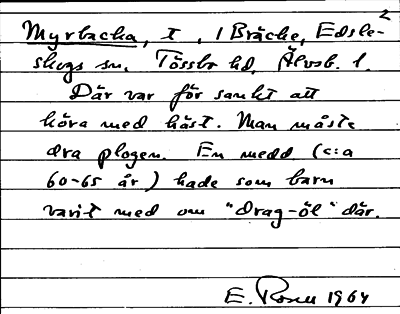 2
Myrbacka, t, 1 Bräcke, Edsle-
skogs sn. Tössbo hd, Älvsb. l.
Där var för sankt att
köra med häst. Man måste
dra plogen. En medd (c:a
60-65 år) hade som barn
varit med om "drag-öl" där.
E. Rosell 1964